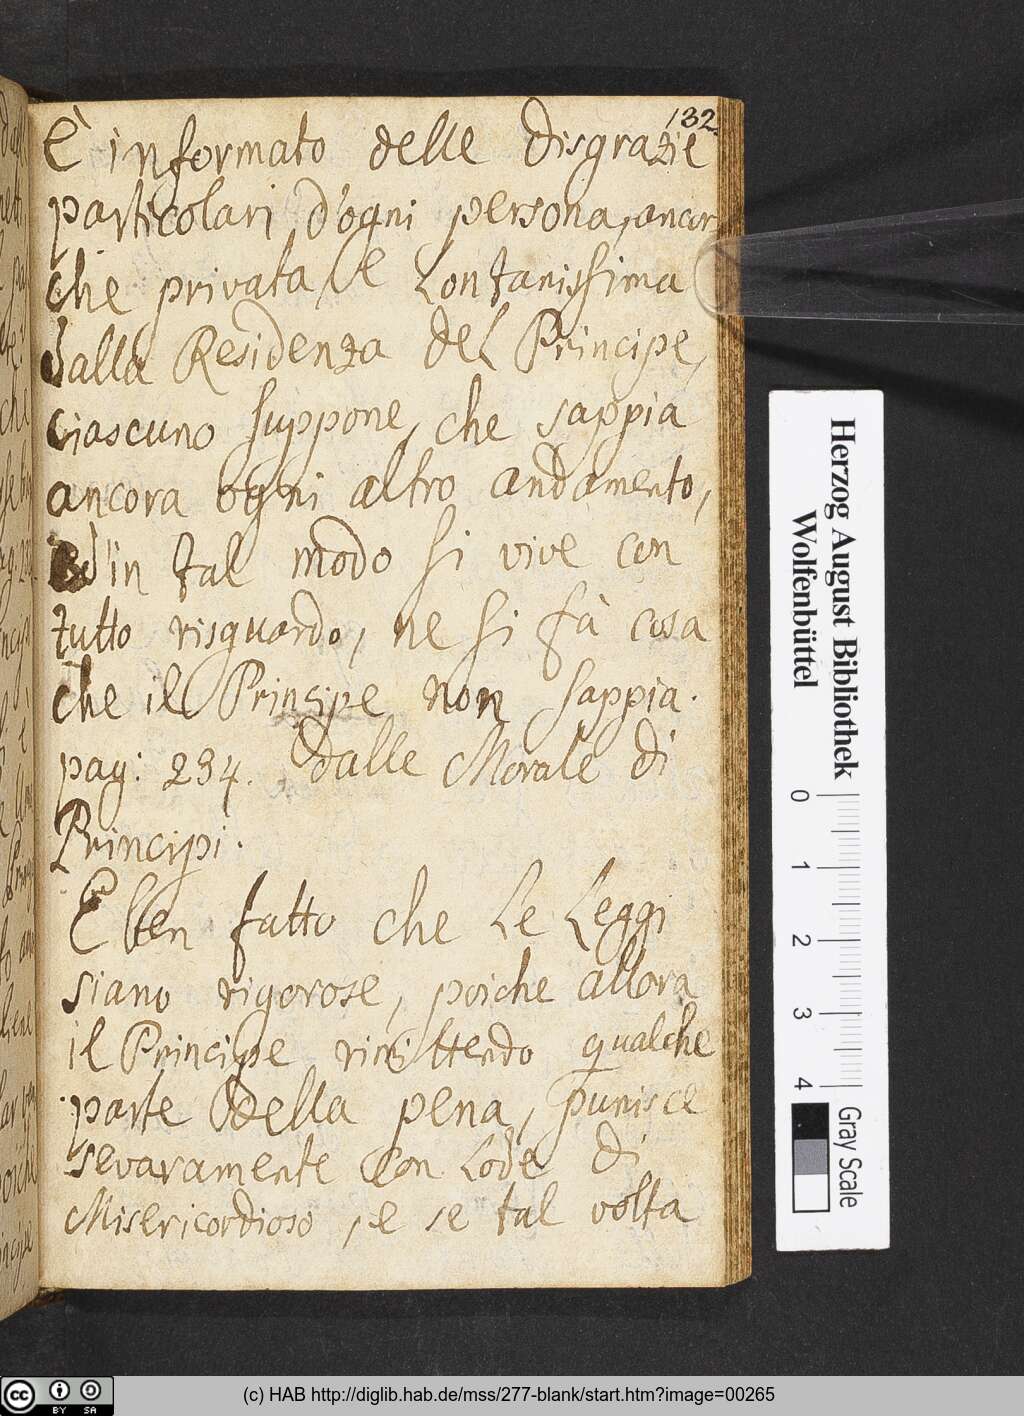 132.
È informato delle Disgrazie
particolari d'ogni persona, ancor
che privata, e Lontanissima
dalla Residenza del Principe,
ciascuno suppone, che sappia
ancora ogni altro andamento,
ed in tal modo si vive con
tutto risguardo, ne si fà cosa
che il Principe non sappia.
pag: 234. dalle Morale di
Principi.
E ben fatto che Le Leggi
siano rigorose, poiche allora
il Principe rimittendo qualche
parte della pena, punisce
sevaramente con Lode di
Misericordioso, e se tal volta
Herzog August Bibliothek
Wolfenbüttel
0 1 2 3 4
Gray Scale
cc BY SA
(c) HAB http://diglib.hab.de/mss/277-blank/start.htm?image=00265